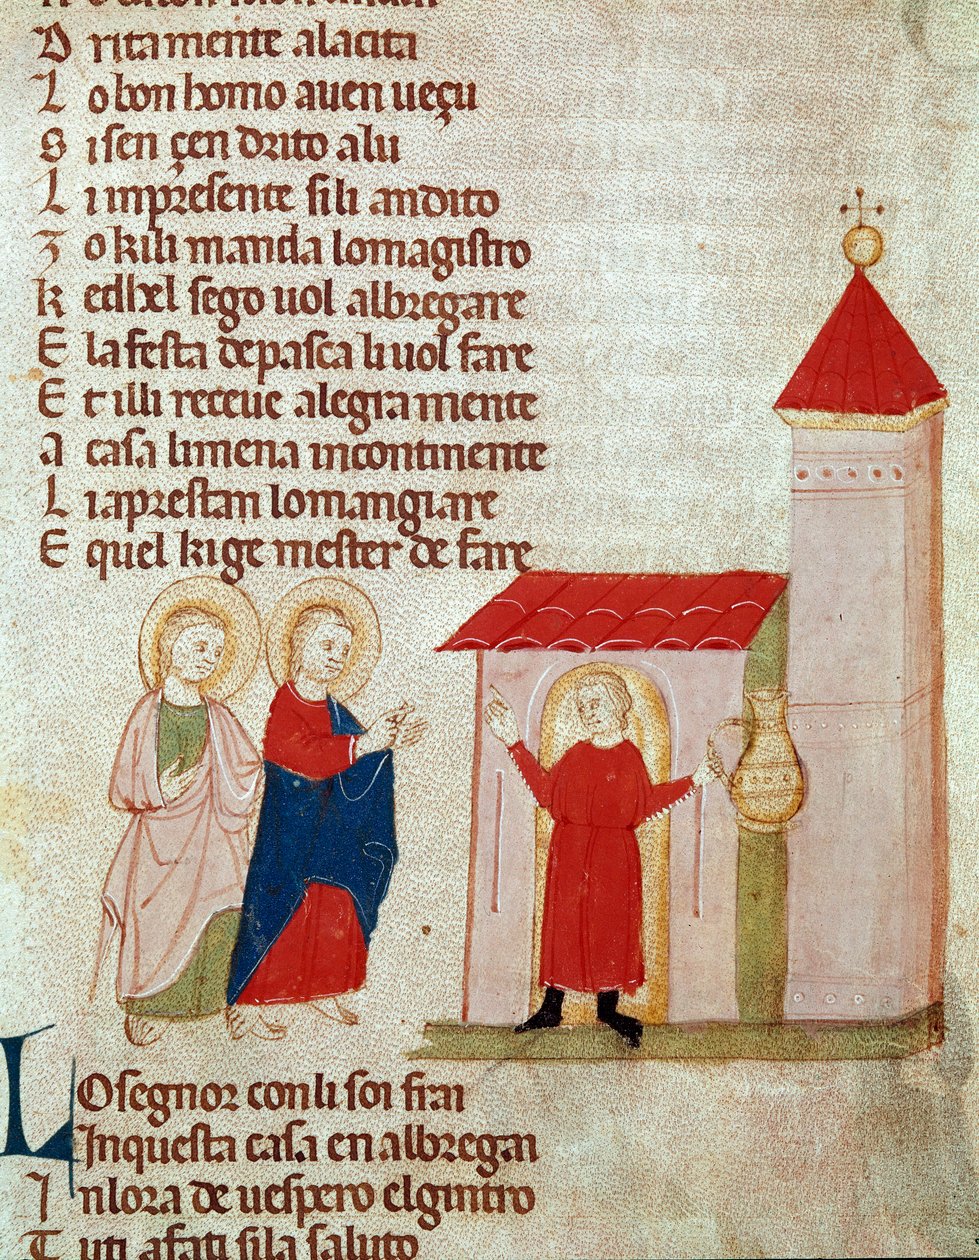 D ritamente alacita
L o bon homo auen ueçu
S i sen çen drito alu
L i inpresente sili andito
Z o kili manda lo magistro
K edhel sego uol albregare
E la festa de pasca li uol fare
E t illi receue alegramente
A casa li mena incontinente
L i aprestan lo mangiare
E quel ki ge mester de fare
LO segnor con li soi frai
In questa casa en albregai
I n lora de uespero el gintro
T uti afati si la saluto